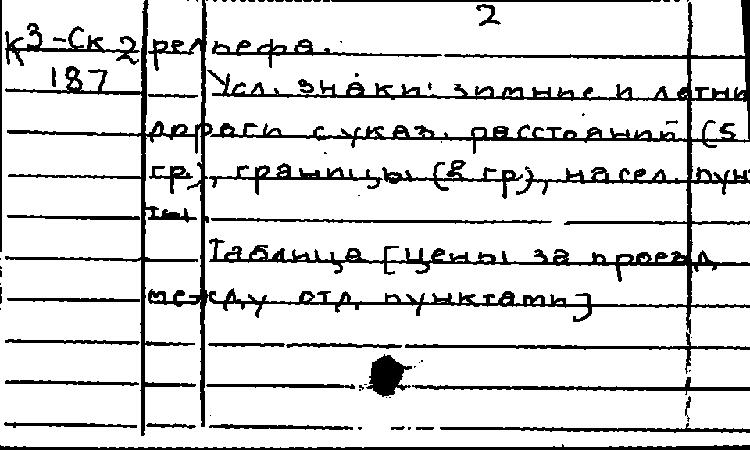 2
К3-Ск 2 рельефа.
187 Усл. знаки: зимние и летни
дороги с указ. расстояний (5
гр), границы (8 гр), насел. пунк
ты.
Таблица [Цены за проезд
между отд. пунктами]